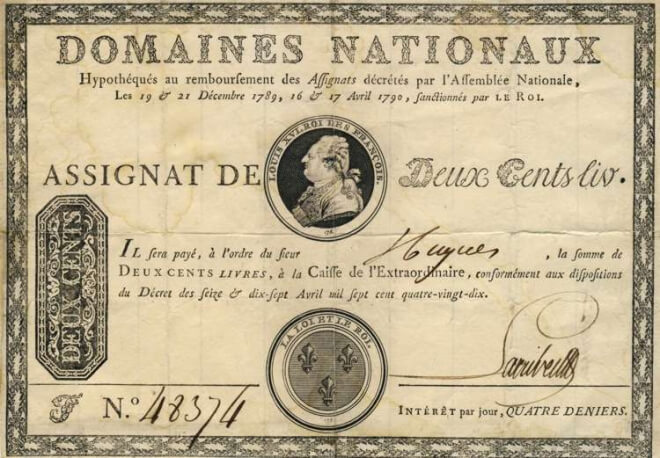 DOMAINES NATIONAUX
Hypothéqués au remboursement des Aſſignats décrétés par l'Aſſemblée Nationale,
Les 19 & 21 Décembre 1789, 16 & 17 Avril 1790, ſanctionnés par LE ROI.
LOUIS XVI, ROI DES FRANÇOIS.
ASSIGNAT DE Deux Cents liv.
DEUX CENTS
IL ſera payé, à l'ordre du ſieur Hugues, la ſomme de
DEUX CENTS LIVRES, à la Caiſſe de l'Extraordinaire, conformément aux diſpoſitions
du Décret des ſeize & dix-ſept Avril mil ſept cent quatre-vingt-dix.
LA LOI ET LE ROI.
N.o 48374
INTÉRÊT par jour, QUATRE DENIERS.